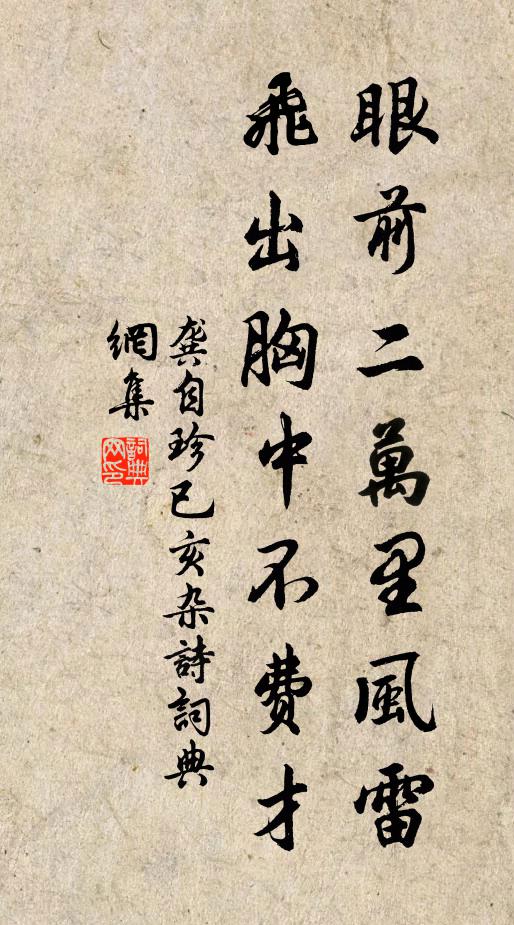 眼前二萬里風雷
飛出胸中不費才
龔自珍己亥杂詩詞典
網集
詞典
网印